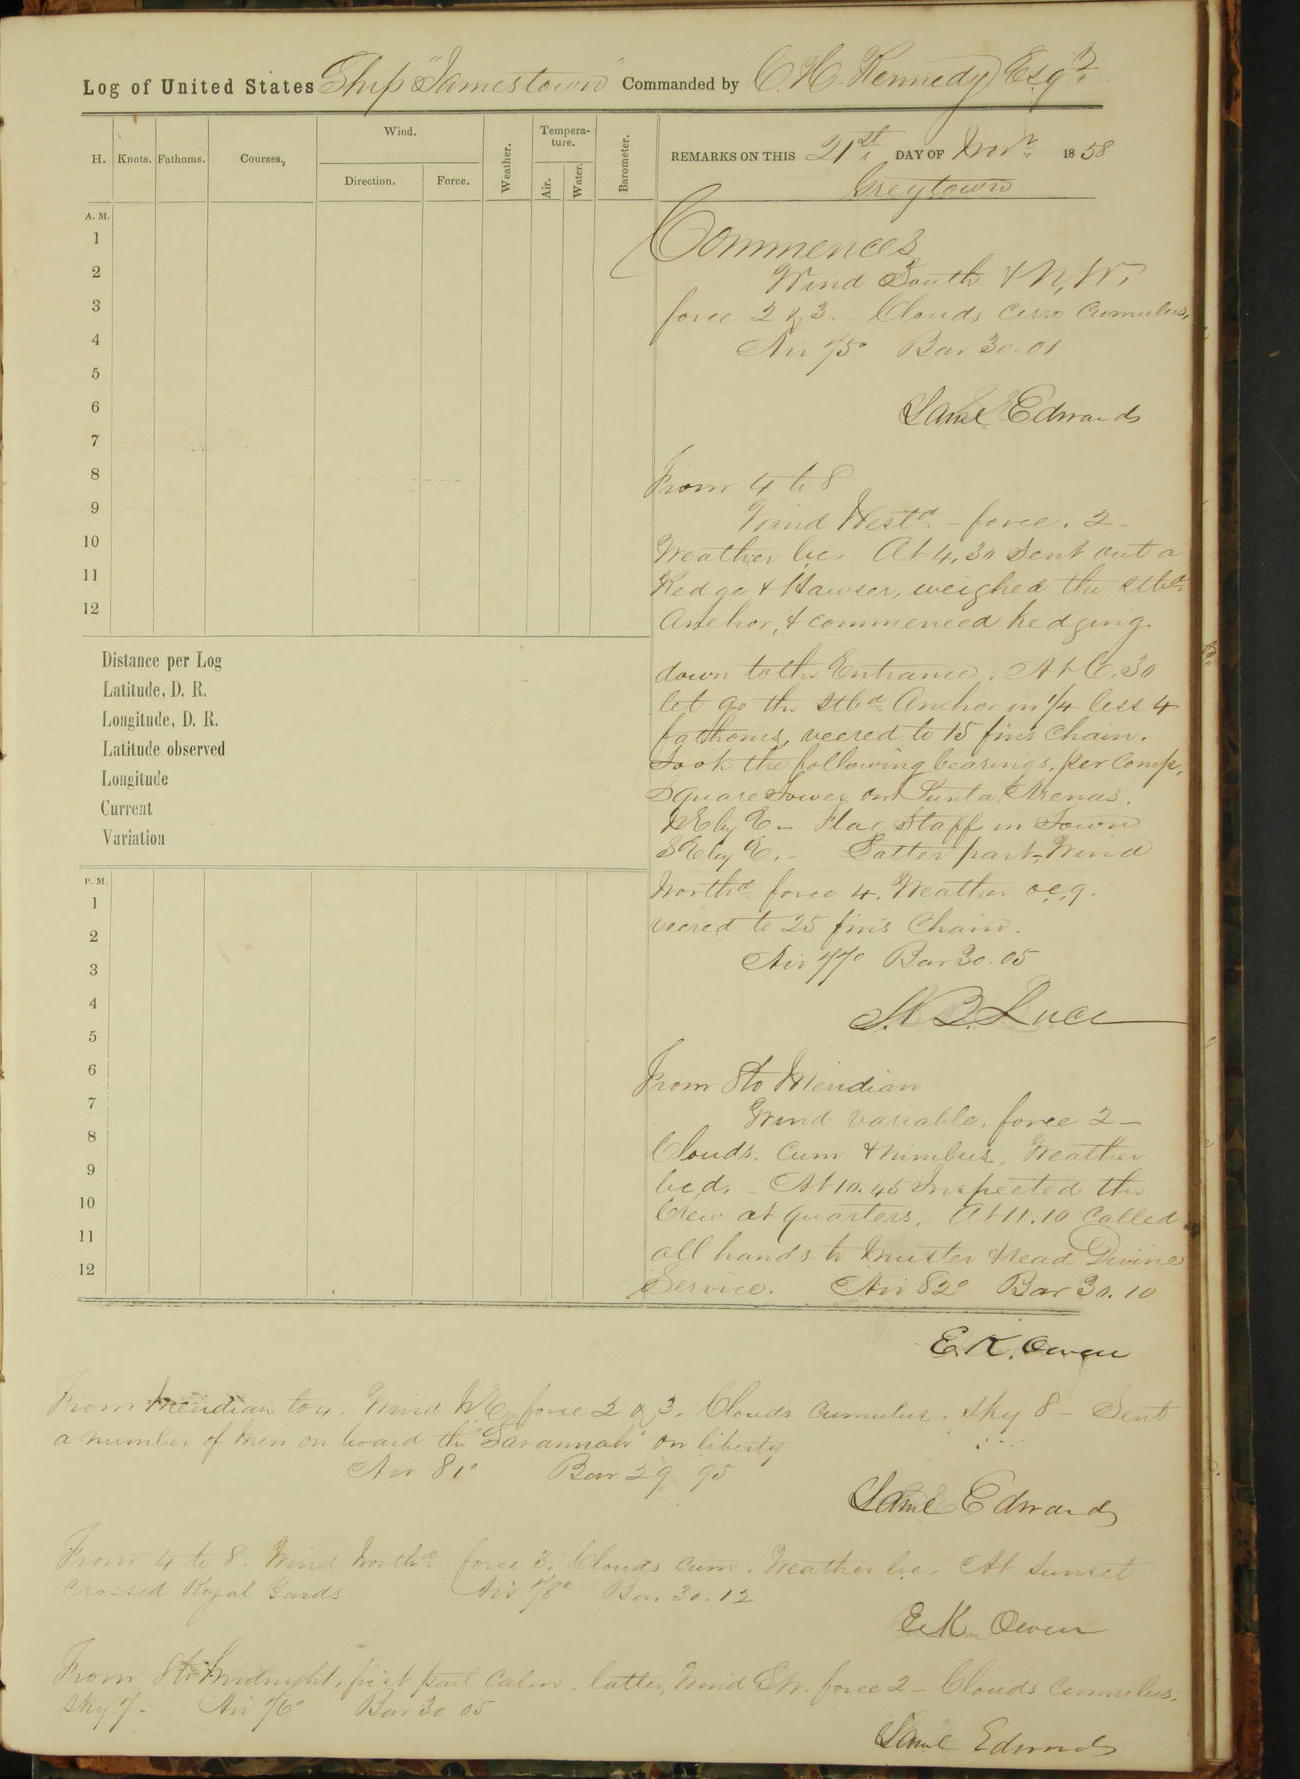 Log of United States Ship "Jamestown" Commanded by C. H. Kennedy Esqr.
H. Knots. Fathoms. Courses, Wind. Direction. Force. Weather. Tempera-ture. Air. Water. Barometer.
REMARKS ON THIS 21st DAY OF Novr. 1858
Greytown
A. M.
1
2
3
4
5
6
7
8
9
10
11
12
Distance per Log
Latitude, D. R.
Longitude, D. R.
Latitude observed
Longitude
Current
Variation
P. M.
1
2
3
4
5
6
7
8
9
10
11
12
Commences
Wind South & N, W,
force 2 & 3. Clouds Cirro Cumulus,
Air 75° Bar 30.01
Saml Edwards
From 4 to 8
Wind Westd. - force. 2 -
Weather bc. At 4,30 Sent out a
Kedge & Hawser, weighed the stbd.
Anchor, & commenced kedging.
down to the Entrance. At 6.30
let go the stbd. Anchor in 1/4 less 4
fathoms, veered to 15 fms chain.
Took the following bearings, per Comp,
Square Tower on Punta Arenas.
NE by E - Flag Staff in Town
SE by E. - Latter part, Wind
Northd. force 4. Weather o.c.q.
veered to 25 fms Chain.
Air 77° Bar 30.05
S. B. Luce
From 8 to Meridian
Wind variable. force 2 -
Clouds. Cum & nimbus. Weather
b.c.d. - At 10.45 Inspected the
Crew at quarters. At 11.10 Called
all hands to muster & read Divine
Service. Air 82° Bar 30.10
E. K. Owen
From Meridian to 4. Wind NE, force 2 & 3. Clouds cumulus. sky 8 - Sent
a number of men on board the "Savannah" on liberty
Air 81° Bar 29.95
Saml Edwards
From 4 to 8. Wind Northd. force 3. Clouds cum. Weather bc. At sunset
crossed Royal Yards Air 78° Bar 30.12
E. K. Owen
From 8 to Midnight, first part Calm. latter, Wind SW. force 2 - Clouds cumulus.
sky 7. Air 76° Bar 30 05
Saml Edwards